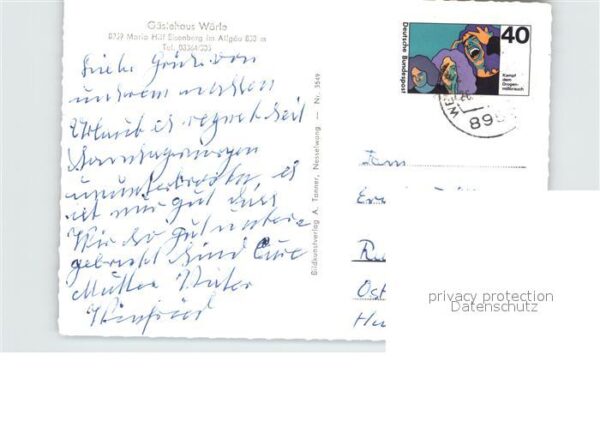 Gästehaus Wörle
8959 Maria Hilf Eisenberg im Allgäu 850 m
Tel. 08364/305
Liebe Grüße von
unserem nassen
Urlaub es regnet seit
Sonntagmorgen
ununterbrochen, es
ist nur gut dass
Wir so gut unter-
gebracht sind Eure
Mutter Vater
Winfried
Bildkunstverlag A. Tanner, Nesselwang. — Nr. 5549
Deutsche Bundespost
40
Kampf
dem
Drogen-
mißbrauch
895
Fam
Ost
privacy protection
Datenschutz